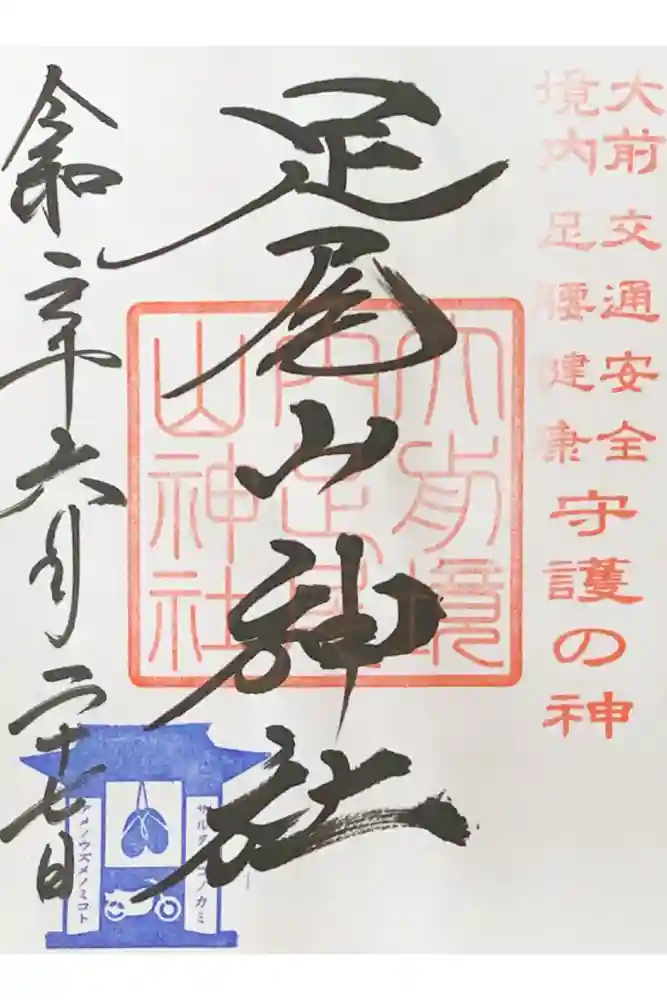 大前 交通安全
境内 足腰健康
守護の神
足尾山神社
大前境
内足尾
山神社
令和年六月二十七日
サルタヒコノカミ
アメノウズメノミコト